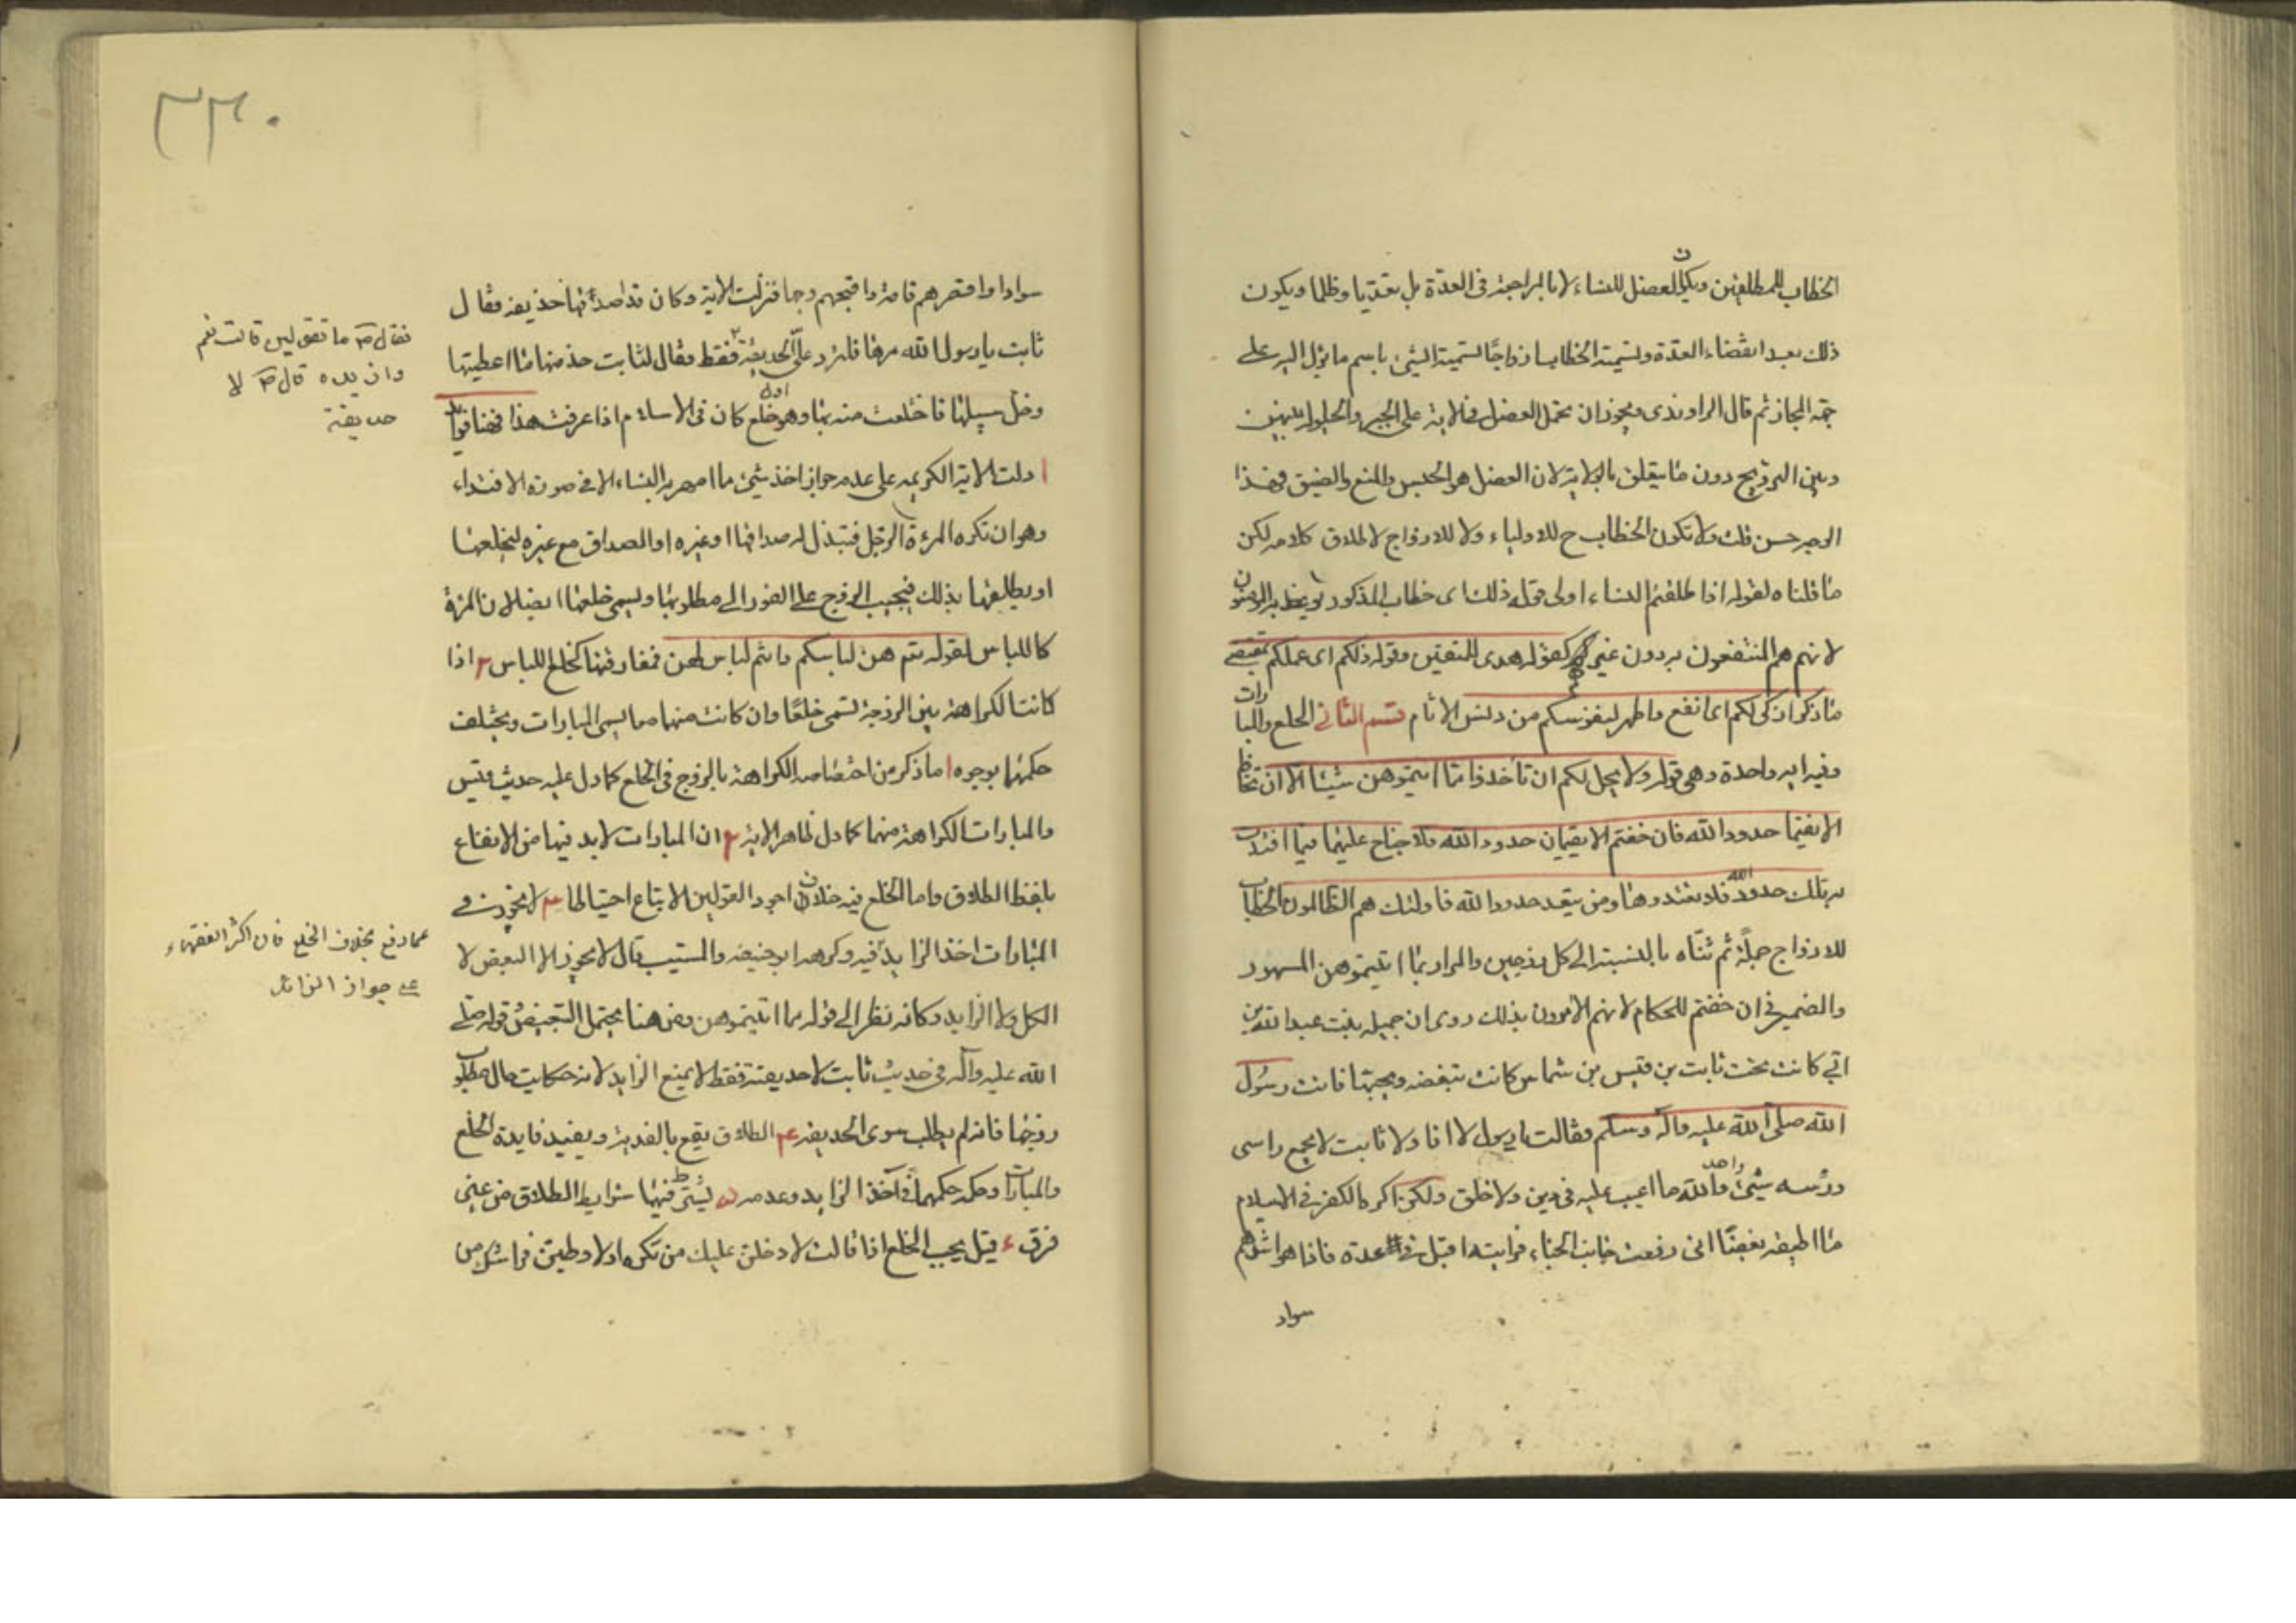 الخطاب للمطلقين ويكون العضل للنساء لا بالمراجعة فى العدة بل تعديا وظلما ويكون
ذلك بعد انقضاء العدة وتسمية الخطاب ازواجًا لتسمية الشئ باسم ما يؤل اليه على
جهة المجاز ثم قال الراوندى ويجوز ان تحمل العضل فى الاية على الجبر والحيلولة بينهن
وبين التزويج دون ما يتعلق بالولاية لان العضل هو الحبس والمنع والضيق فهذا
الوجه حسن قلت ولا تكون الخطاب ح للاولياء ولا للازواج لاطلاق كلامه لكن
ما قلناه لقوله اذا طلقتم النساء اولى قوله ذلك اى خطاب المذكور يوعظ به المؤمنون
لانهم هم المنتفعون به دون غيرهم كقوله هدى للمتقين وقوله ذلكم اى عملكم بمقتضى
ما ذكر ازكى لكم اى انفع واطهر لنفوسكم من دنس الاثام قسم الثانى الخلع والمبارات
وفيه اية واحدة وهى قوله ولا يحل لكم ان تاخذوا مما اتيتموهن شيئا الا ان يخافا
الا يقيما حدود الله فان خفتم الا يقيمان حدود الله فلا جناح عليهما فيما افتدت
به تلك حدود الله فلا تعتدوها ومن يتعد حدود الله فاولئك هم الظالمون الخطاب
للازواج جملةً ثم ثنّاه بالنسبة الى كل زوجين والمراد بما اتيتموهن المهور
والضمير فى ان خفتم للحكام لانهم الآمرون بذلك روى ان جميلة بنت عبد الله بن
ابى كانت تحت ثابت بن قيس بن شماس كانت تبغضه ويحبها فاتت رسول
الله صلى الله عليه وآله وسلم فقالت يا رسول لا انا ولا ثابت لا يجمع راسى
ورأسه شئ واحد والله ما اعيب عليه فى دين ولا خلق ولكن اكره الكفر فى الاسلام
ما اطيقه بغضًا انى رفعت جانب الخباء فرايته اقبل فى عدة فاذا هو اشدهم
سواد
سوادا واقصرهم قامة واقبحهم وجها فنزلت الاية وكان قد اصدقها حديقة فقال
ثابت يا رسول الله مرها فلترد علىّ الحديقة فقط فقال لثابت خذ منها ما اعطيتها
وخل سبيلها فاختلعت منه بها وهو اول خلع كان فى الاسلام اذا عرفت هذا فهنا فوائد
ا دلت الاية الكريمة على عدم جواز اخذ شئ مما امهر به النساء الا فى صورة الافتداء
وهو ان تكره المرءة الرجل فتبذل له صداقها او غيره او الصداق مع غيره ليخلعها
او يطلقها بذلك فيجيب الزوج على الفور الى مطلوبها ويسمى خلعها ايضا لان المرءة
كاللباس لقوله تتم هن لباسكم وانتم لباس لهن فمفارقتها كخلع اللباس ٢ اذا
كانت الكراهة بين الزوجة تسمى خلعًا وان كانت منهما معا يسمى المبارات ويختلف
حكمهما بوجوه ا ما ذكر من اختصاص الكراهة بالزوج فى الخلع كما دل عليه حديث قيس
والمبارات الكراهة منهما كما دل ظاهر الاية ٢ ان المبارات لا بد فيها من الايقاع
بلفظ الطلاق واما الخلع فيه خلاف اجود القولين الاتباع احتياطا ٣ لا يجوز فى
المبارات اخذ الزايد فيه وكرهه ابو حنيفة والمسيب قال لا يجوز الا البعض لا
الكل ولا الزايد وكانه نظر الى قوله مما اتيتموهن ومن هنا يحتمل التبعيض وقوله صلى
الله عليه وآله فى حديث ثابت لا حديقة فقط لا يمنع الزايد لانه حكايت حال مطلوب
زوجها فانه لم يطلب سوى الحديقة ٤ الطلاق يقع بالفدية ويفيد فايدة الخلع
والمبارات وحكمه حكمهما فى اخذ الزايد وعدمه ٥ يشترط فيهما شرايط الطلاق من غير
فرق ء قيل يجب الخلع اذا قالت لا دخلن عليك من تكره او لا وطين فراشك من
فقال ص ما تقولين قالت نعم
وازيده قال ص لا
حديقة
عما دفع بخلاف الخلع فان اكثر الفقهاء
على جواز الزائد
٣٣٠